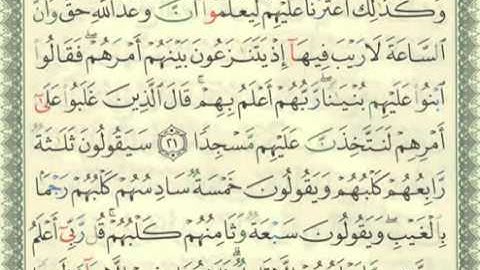 وَكَذَٰلِكَ أَعْثَرْنَا عَلَيْهِمْ لِيَعْلَمُوٓا۟ أَنَّ وَعْدَ ٱللَّهِ حَقٌّ وَأَنَّ
ٱلسَّاعَةَ لَا رَيْبَ فِيهَآ إِذْ يَتَنَـٰزَعُونَ بَيْنَهُمْ أَمْرَهُمْ ۖ فَقَالُوا۟
ٱبْنُوا۟ عَلَيْهِم بُنْيَـٰنًا ۖ رَّبُّهُمْ أَعْلَمُ بِهِمْ ۚ قَالَ ٱلَّذِينَ غَلَبُوا۟ عَلَىٰٓ
أَمْرِهِمْ لَنَتَّخِذَنَّ عَلَيْهِم مَّسْجِدًا ﴿٢١﴾ سَيَقُولُونَ ثَلَـٰثَةٌ
رَّابِعُهُمْ كَلْبُهُمْ وَيَقُولُونَ خَمْسَةٌ سَادِسُهُمْ كَلْبُهُمْ رَجْمًۢا
بِٱلْغَيْبِ ۖ وَيَقُولُونَ سَبْعَةٌ وَثَامِنُهُمْ كَلْبُهُمْ ۚ قُل رَّبِّىٓ أَعْلَمُ